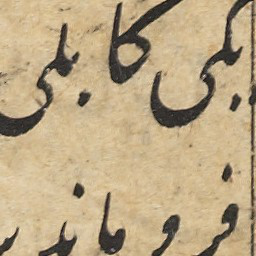 یکی کابلی
فرو ماند